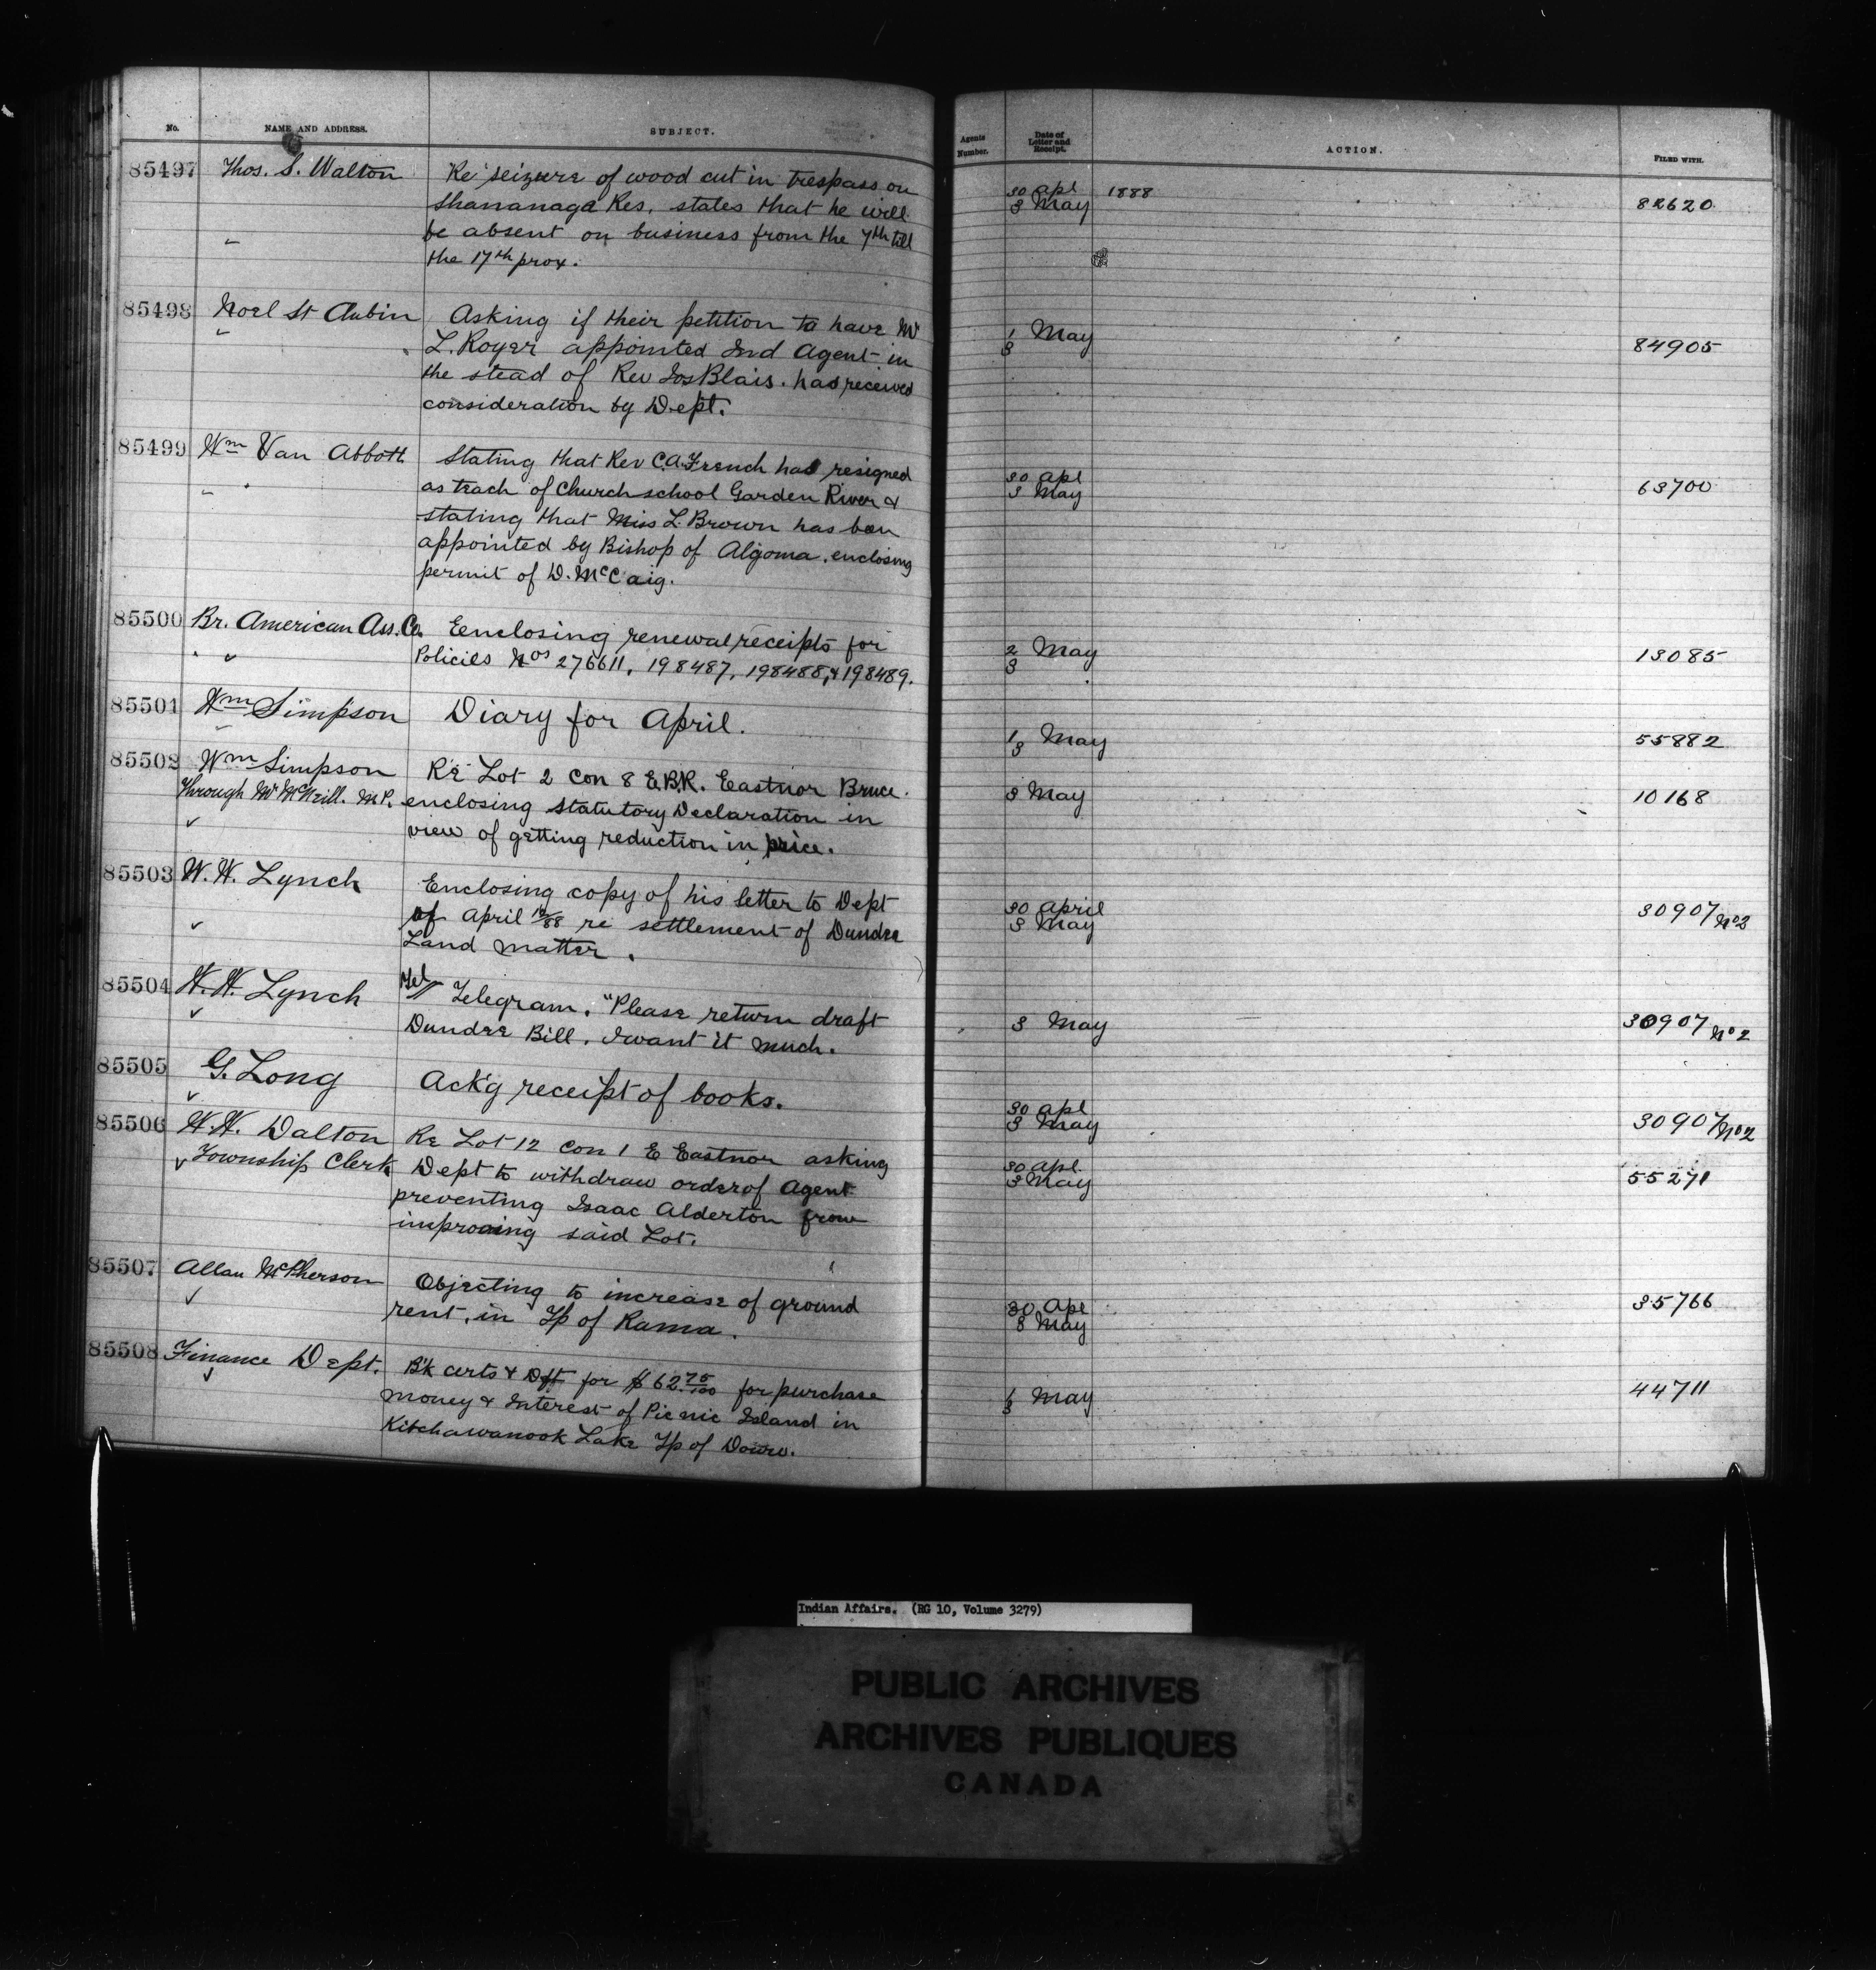 No. NAME AND ADDRESS. SUBJECT. Agents Number. Date of Letter and Receipt. ACTION. FILED WITH.
85497 Thos. S. Walton Re seizure of wood cut in trespass on 30 apl 1888
Shananaga Res. states that he will 3 May 82620
be absent on business from the 7th till
the 17th prox.
85498 Noel St Aubin Asking if their petition to have Mr 1 May
L. Royer appointed Ind Agent in 3 84905
the stead of Rev Jos Blais. has received
consideration by Dept.
85499 Wm Van Abbott Stating that Rev C.A. French has resigned 30 apl
as teach of Church school Garden River & 3 May 63700
stating that Miss L. Brown has been
appointed by Bishop of Algoma. enclosing
permit of D. McCaig.
85500 Br. American Ass. Co. Eenclosing renewal receipts for 2 May
Policies Nos 276611, 198487, 198488, & 198489. 3 13085
85501 Wm Simpson Diary for April. 1 May 55882
3
85502 Wm Simpson Re Lot 2 con 8 E.B.R. Eastnor Bruce.
Through Mr McNeill. M.P. enclosing Statutory Declaration in 3 May 10168
view of getting reduction in price.
85503 W. W. Lynch Enclosing copy of his letter to Dept 30 April
of April 19/88 re settlement of Dundee 3 May 30907/No2
Land matter.
85504 W. W. Lynch Tel Telegram. "Please return draft
Dundee Bill. I want it much. 3 May 30907 No2
85505 G. Long Ack'g receipt of books. 30 apl
3 May 30907/No2
85506 W. W. Dalton Re Lot 12 con 1 E Eastnor asking 30 apl.
Township Clerk Dept to withdraw order of Agent 3 May 55271
preventing Isaac Alderton from
improving said Lot.
85507 Allan McPherson Objecting to increase of ground 30 Apl 35766
rent, in Tp of Rama. 3 May
85508 Finance Dept. B'k certs & Dft for $62.75/100 for purchase 1 May 44711
Money & Interest of Picnic Island in 3
Kitchawanook Lake Tp of Douro.
Indian Affairs. (RG 10, Volume 3279)
PUBLIC ARCHIVES
ARCHIVES PUBLIQUES
CANADA